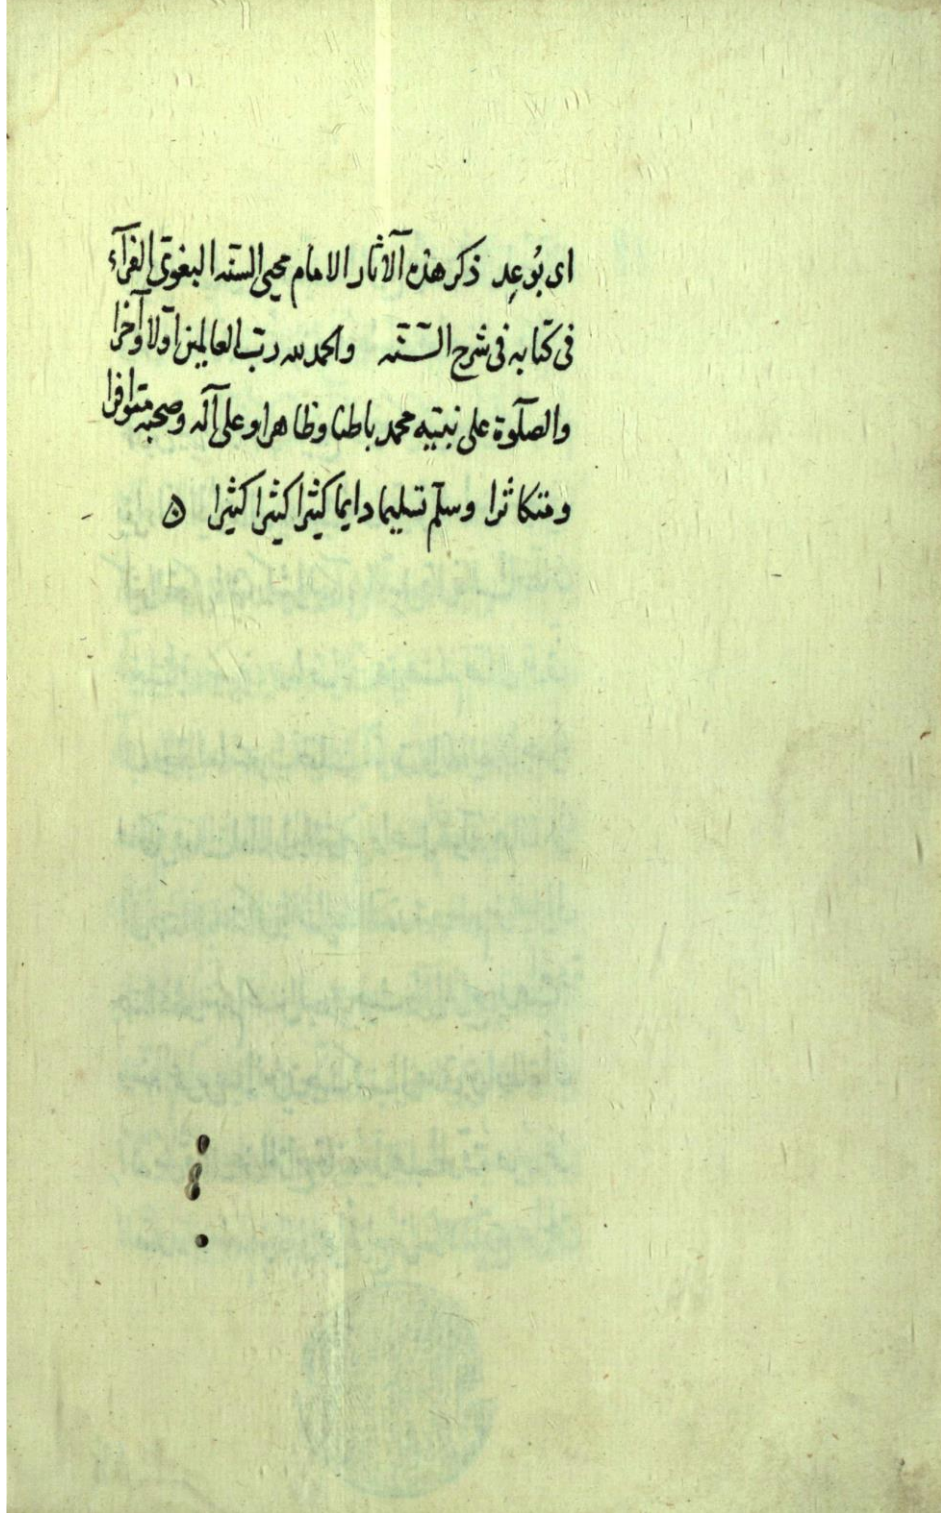 اى بُوعِد ذكر هذه الآثار الامام محيى السنّه البغوىّ الفرّآء
فى كتابه فى شرح السّنّه والحمد لله ربّ العالمين اوّلا وآخرا
والصلٓوة على نبيّه محمد باطنا وظاهرا وعلى آله وصحبه متوافرا
ومتكاثرا وسلّم تسليما دايما كثيرا كثيرا كثيرا ۞